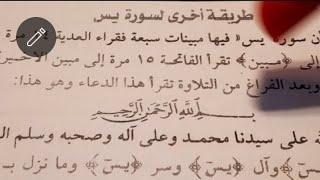 طريقة أخرى لسورة يس
ن سورة يس" فيها مبينات سبعة فقراء العدية مرة
إلى ﴿مبين﴾ تقرأ الفاتحة ١٥ مرة إلى مبين الأخير
وبعد الفراغ من التلاوة تقرأ هذا الدعاء وهو هذا:
بسم الله الرحمن الرحيم
ة على سيدنا محمد وعلى آله وصحبه وسلم
يسَ﴾ وآل ﴿يسَ﴾ وسر ﴿يسَ﴾ وما نزل بـ